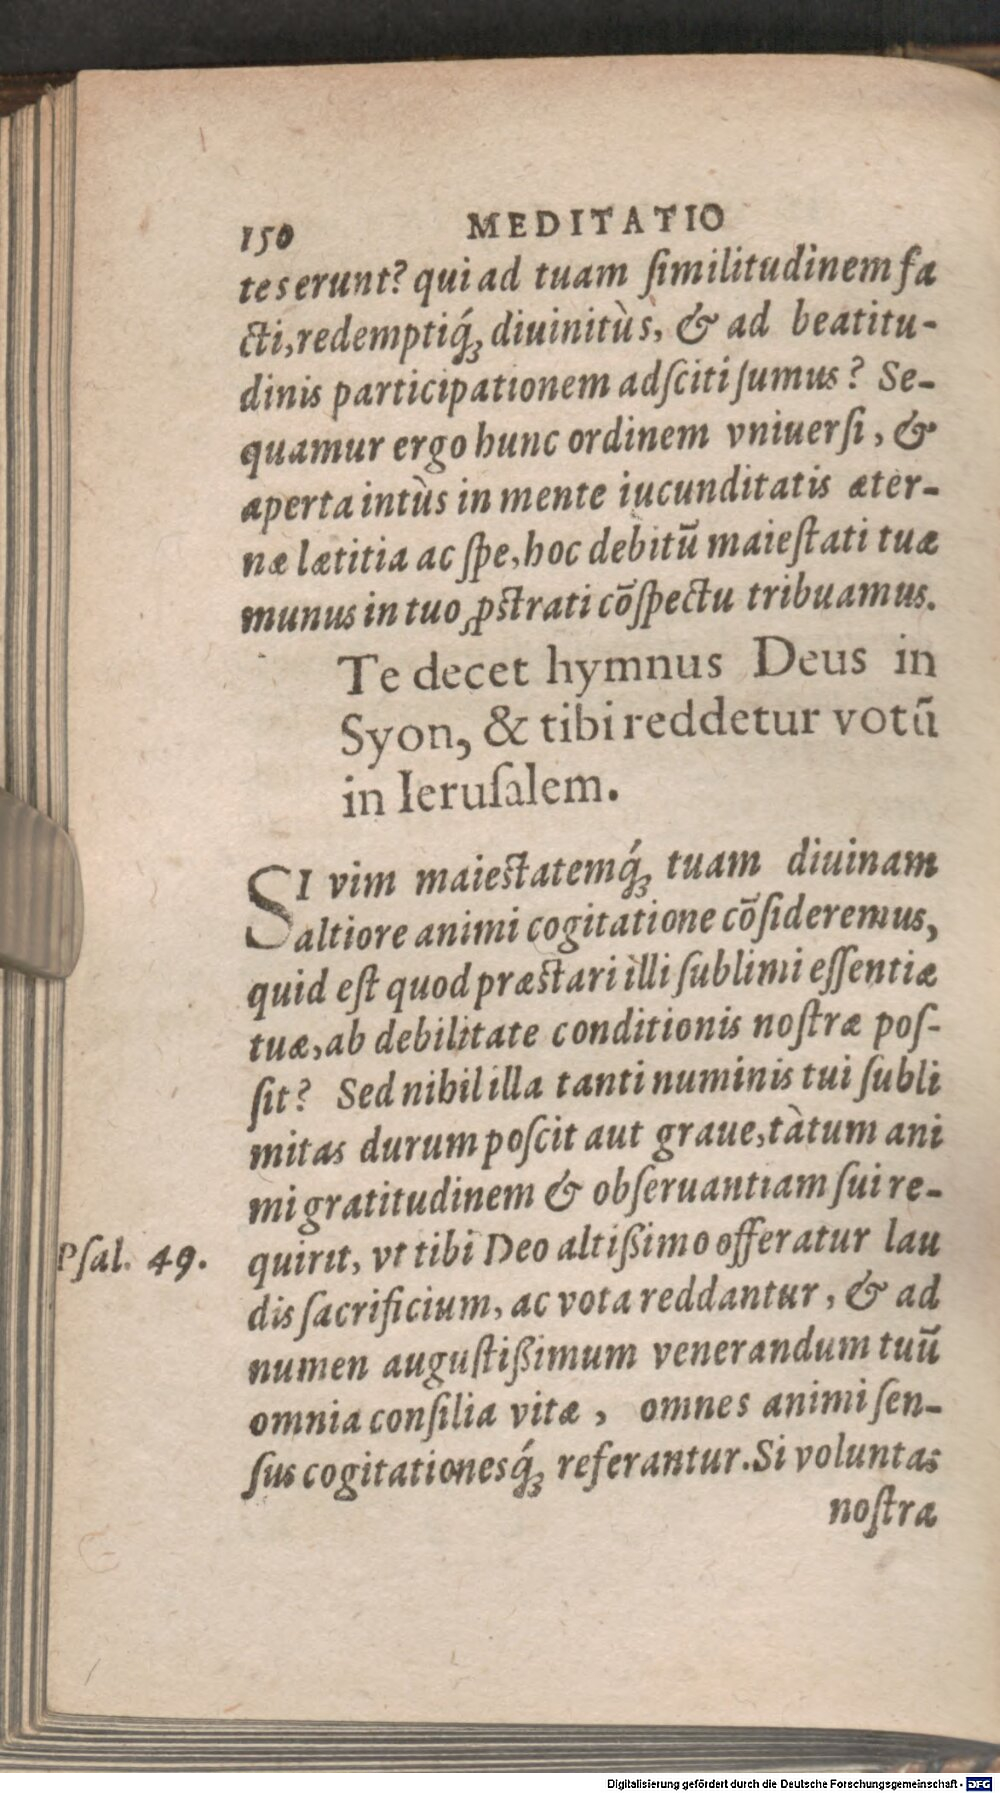 150 MEDITATIO
tes erunt? qui ad tuam ſimilitudinem fa
cti, redemptiq́ꝫ diuinitùs, & ad beatitu-
dinis participationem adſciti ſumus? Se-
quamur ergo hunc ordinem vniuerſi, &
aperta intùs in mente iucunditatis æter-
næ lætitia ac ſpe, hoc debitũ maieſtati tuæ
munus in tuo ꝓſtrati cõſpectu tribuamus.
Te decet hymnus Deus in
Syon, & tibi reddetur votũ
in Ieruſalem.
SI vim maieſtatemq́ꝫ tuam diuinam
altiore animi cogitatione cõſideremus,
quid eſt quod præſtari illi ſublimi eſſentiæ
tuæ, ab debilitate conditionis noſtræ poſ-
ſit? Sed nihil illa tanti numinis tui ſubli
mitas durum poſcit aut graue, tàtum ani
mi gratitudinem & obſeruantiam ſui re-
Pſal. 49. quirit, vt tibi Deo altißimo offeratur lau
dis ſacrificium, ac vota reddantur, & ad
numen auguſtißimum venerandum tuũ
omnia conſilia vitæ, omnes animi ſen-
ſus cogitationesq́ꝫ referantur. Si voluntas
noſtra
Digitalisierung gefördert durch die Deutsche Forschungsgemeinschaft - DFG